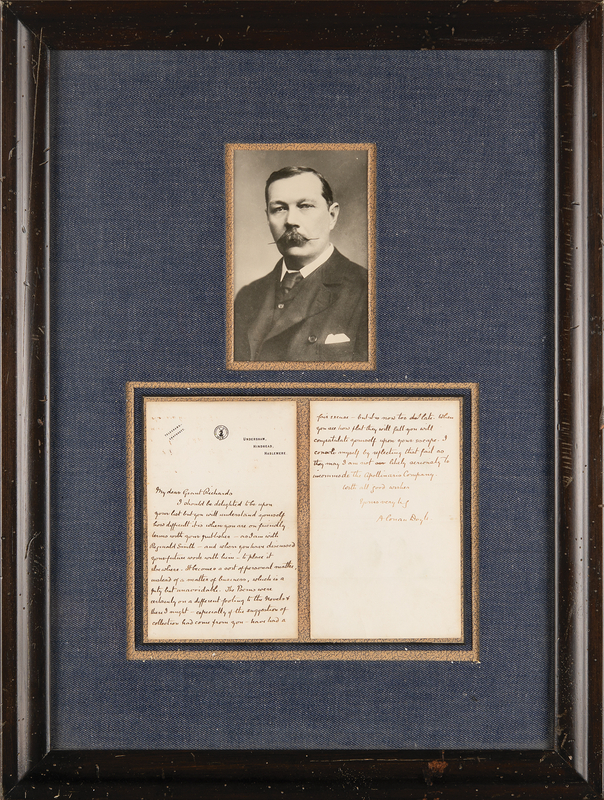 Undershaw,
Hindhead,
Haslemere.
My dear Grant Richards
I should be delighted to be upon
your list but you will understand yourself
how difficult it is when you are on friendly
terms with your publisher - as I am with
Reginald Smith - and where you have discussed
your future work with him - to place it
elsewhere. It becomes a sort of personal matter,
instead of a matter of business, which is a
pity but unavoidable. The Poems were
certainly on a different footing to the Novels &
there I might - especially if the suggestion of
collection had come from you - have had a
fair excuse - but it is now too late. When
you see how flat they will fall you will
congratulate yourself upon your escape. I
console myself by reflecting that fail as
they may I am not likely seriously to
incommode the Apollinaris Company
With all good wishes
Yours very truly
A Conan Doyle